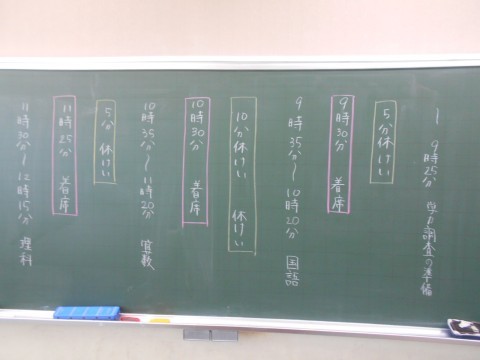 ～ 9時25分 学力調査の準備
5分休けい
9時30分 着席
9時35分～10時20分 国語
10分休けい 休けい
10時30分 着席
10時35分～11時20分 算数
5分休けい
11時25分 着席
11時30分～12時15分 理科